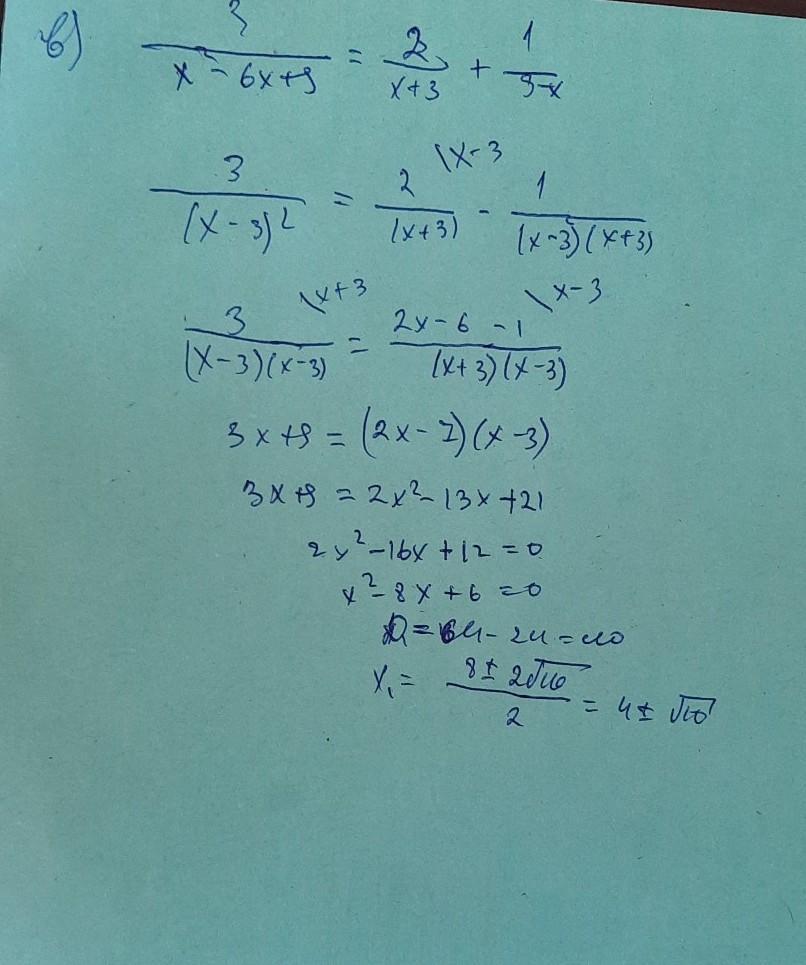 в) 3/(x² - 6x + 9) = 2/(x+3) + 1/(9-x)
3/(x-3)² = 2/(x+3) \x-3 - 1/((x-3)(x+3))
3/((x-3)(x-3)) \x+3 = (2x-6-1)/((x+3)(x-3)) \x-3
3x+9 = (2x-7)(x-3)
3x+9 = 2x²-13x+21
2x²-16x+12=0
x²-8x+6=0
D=64-24=40
x₁ = (8±2√10)/2 = 4±√10